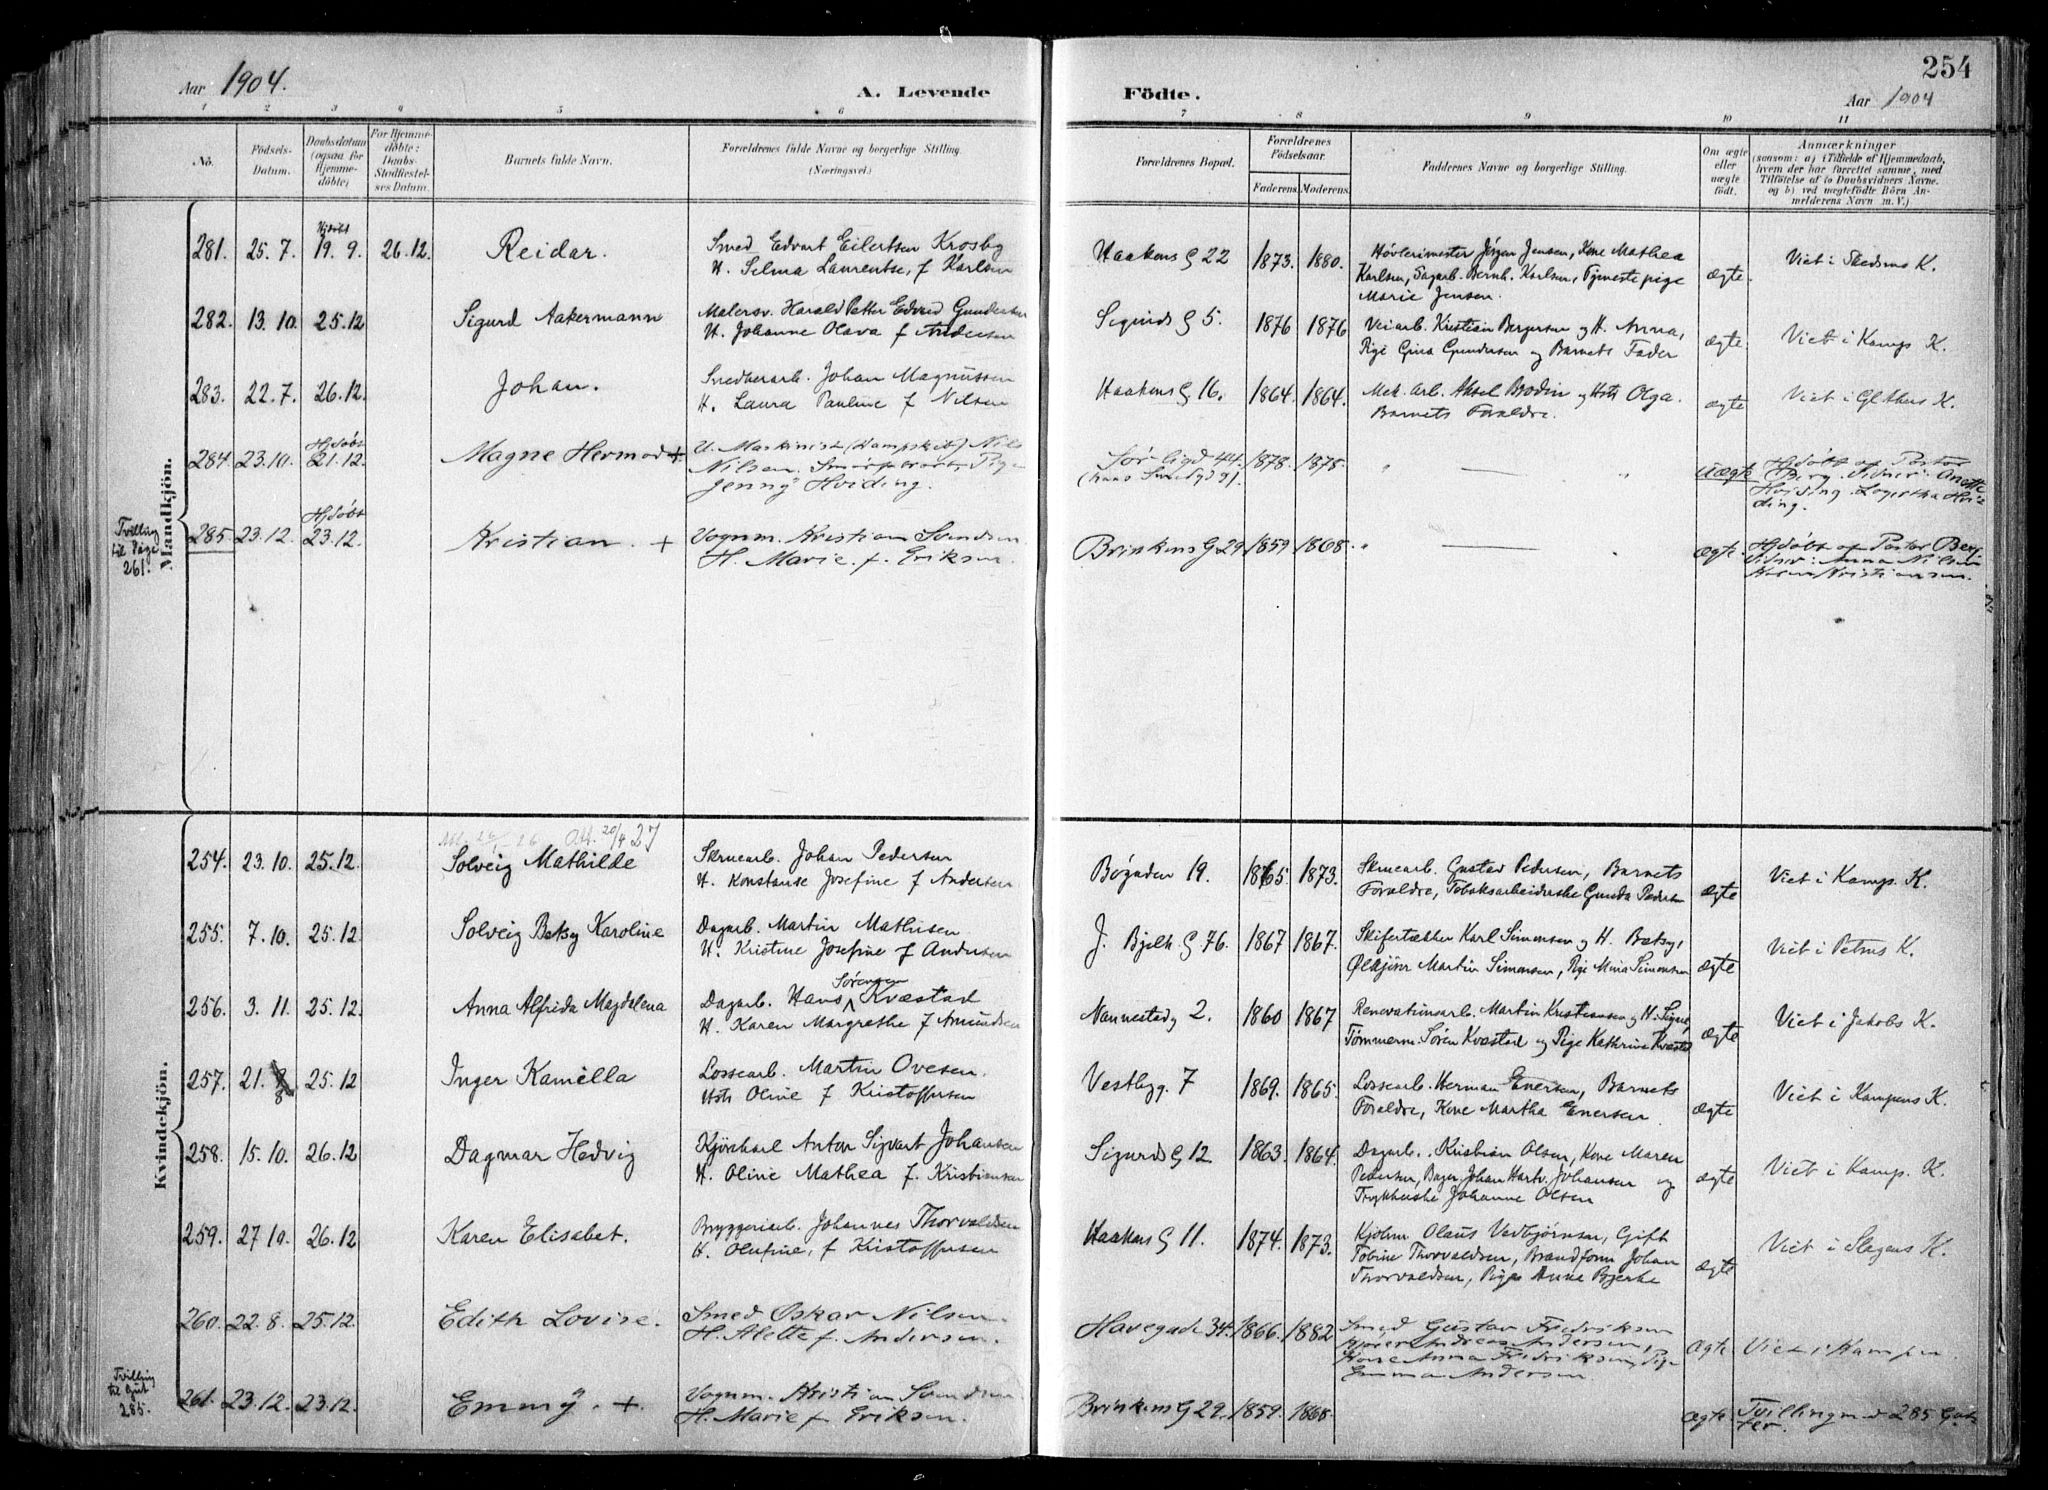 254
Aar 1904.
A. Levende
Födte.
Aar 1904
1 2 3 4 5 6 7 8 9 10 11
No.
Födsels-Datum.
Daabsdatum (ogsaa for Hjemmedöbte)
For Hjemmedöbte: Daabs-Stadfæstelses Datum.
Barnets fulde Navn.
Forældrenes fulde Navne og borgerlige Stilling.
(Næringsvei.)
Forældrenes Bopæl.
Forældrenes Födselsaar.
Faderens. Moderens.
Faddernes Navne og borgerlige Stilling.
Om ægte eller uægte födt.
Anmærkninger
(saasom: a) i Tilfælde af Hjemmedaab, hvem der har forrettet samme, med Tilföielse af to Daabsvidners Navne. og b) ved uægtefödte Börn Anmelderens Navn m. V.)
Mandkjön.
281. 25.7. 19.9. 26.12. Reidar.
Smed Edvart Eilertsen Krosby
H. Selma Laurentse, f Karlsen
Haakens G 22 1873. 1880.
Høvlerimester Jörgen Jensen, Kone Mathea
Karlsen, Sagarb. Bernh. Karlsen, Tjenestepige
Marie Jensen.
ægte. Viet i Skedsmo K.
282. 13.10. 25.12 Sigurd Aakermann
Malersv. Harald Petter Edvard Gundersen
H. Johanne Olava f Andersen
Sigurds G 5. 1876 1876
Veiarb. Kristian Bergersen og H. Anna,
Pige Gina Gundersen og Barnets Fader
ægte. Viet i Kamp. K.
283. 22.7. 26.12. Johan.
Smedverarb. Johan Magnussen
H. Laura Pauline f Nilsen
Haakens G 16. 1864. 1864.
Mek. Arb. Aksel Brodin og Hst Olga.
Barnets Forældre.
ægte Viet i Gl. Akers K.
284. 23.10. Hjdøbt 21.12. Magne Hermod +
U. Maskinist (Dampskib) Nils
Nilsen Pige
Jenny Hviding.
Sørligd 44. 1878. 1878.
uægte Hjdøbt af Pastor
Berg. Vidner: Anette
Hviding. Hviding.
Tvilling til Pige 261.
285. 23.12. Hjdøbt 23.12. Kristian. +
Vognm. Kristian Svendsen
H. Marie f. Eriksen.
Brinkens G 29. 1859. 1868.
ægte. Hjdøbt af Pastor Berg.
Vidner: Anna Nilsen
Kristiansen.
Kvindekjön.
20/4 27
254. 23.10. 25.12. Solveig Mathilde
Skruearb. Johan Pedersen
H. Konstanse Josefine f Andersen
Bøgaden 19. 1865. 1873.
Skruearb. Gustav Pedersen, Barnets
Forældre, Tobaksarbeiderske Gunda Pedersen
ægte Viet i Kamp. K.
255. 7.10. 25.12. Solveig Betsy Karoline
Dagarb. Martin Mathisen
H. Kristine Josefine f Andersen
J. Bjelk G 76. 1867 1867.
Skifertækker Karl Simonsen og H. Betsy,
Ølkjører Martin Simonsen, Pige Mina Simonsen
ægte Viet i Petrus K.
256. 3.11. 25.12. Anna Alfrida Magdalena
Dagarb. Hans Sørensen Kvæstad
H. Karen Margrethe f Amundsen
Nannestadg 2. 1860 1867
Renovationsarb. Martin Kristiansen og H. Signe,
Tömmerm. Søren Kvæstad og Pige Kathrine Kvæstad
ægte Viet i Jakobs K.
257. 21.8 25.12 Inger Kamilla
Lossearb. Martin Ovesen.
Hst Oline f Kristoffersen
Vestbyg. 7 1869. 1865.
Lossearb. Herman Enersen, Barnets
Forældre, Kone Martha Enersen
ægte Viet i Kampens K.
258. 15.10. 26.12 Dagmar Hedvig
Kjörekarl Anton Sigvart Johansen
H. Oline Mathea f. Kristiansen
Sigurds G 12 1863. 1864.
Dagarb. Kristian Olsen, Kone Maren
Pedersen, Bager Johan Hartv. Johansen og
Trykkerske Johanne Olsen
ægte Viet i Kamp. K.
259. 27.10. 26.12 Karen Elisabet.
Bryggeriarb. Johannes Thorvaldsen
H. Olufine, f Kristoffersen
Haakens G 11. 1874. 1873.
Kjöbm Olaus Vedbjørnsen, Gift
Tobine Thorvaldsen, Brandkonn Johan
Thorvaldsen, Pige Anne Bjerke
ægte Viet i Slagens K.
260. 22.8. 25.12. Edith Lovise.
Smed Oskar Nilsen.
H. Alette f. Andersen.
Havegade 34. 1866. 1882
Smed Gustav Fredriksen
Andreas Andersen,
Kone Anna Fredriksen, Pige
Emma Andersen
ægte Viet i Kampen
Tvilling til Gut 285.
261. 23.12. 23.12. Emmy. +
Vognm. Kristian Svendsen
H. Marie f Eriksen.
Brinkens G 29. 1859. 1868.
ægte Tvilling med 285 Gutter.